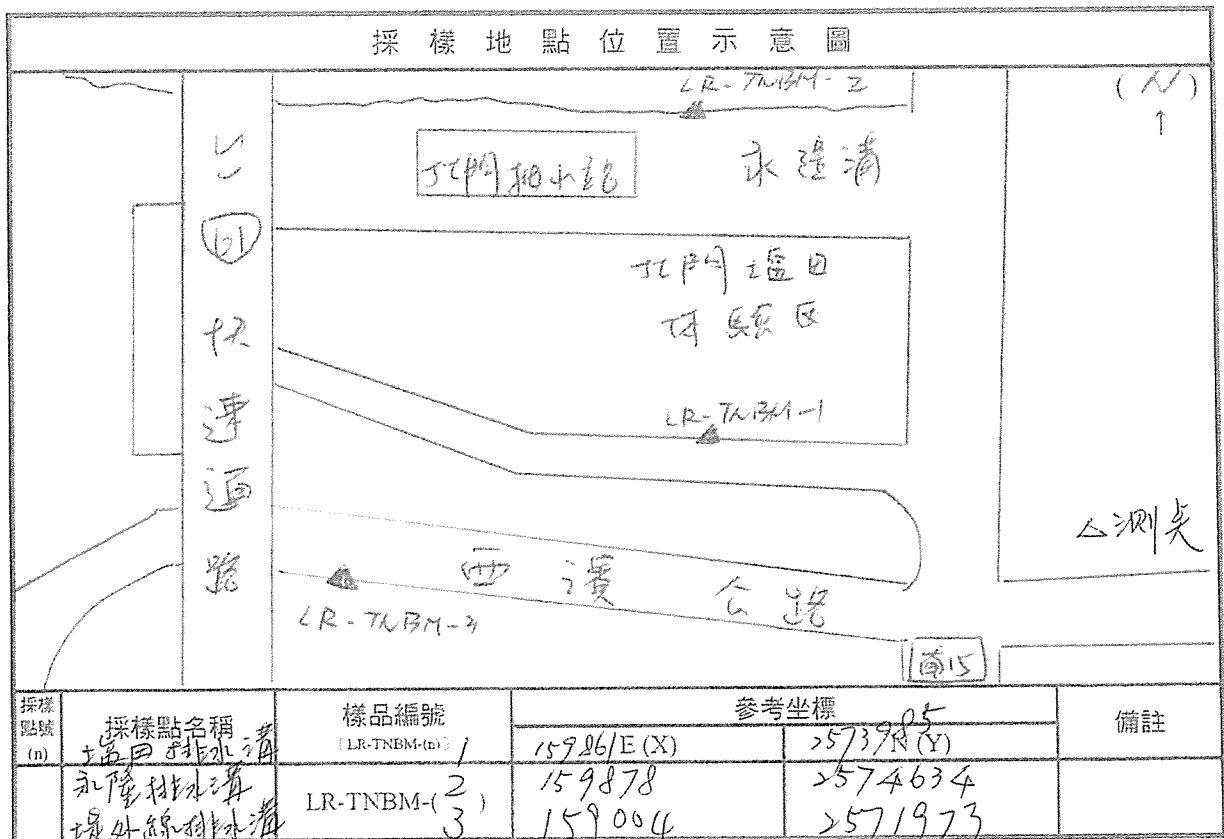 採樣地點位置示意圖
(N)
↑
LR-TNBM-2
北門排水站
永隆溝
台61快速道路
北門塩田
体驗区
LR-TNBM-1
△測点
西濱公路
LR-TNBM-3
南15
採樣點號(n) 採樣點名稱 樣品編號(LR-TNBM-(n)) 參考坐標 備註
塩田排水溝 1 159861 E (X) 2573985 N (Y)
永隆排水溝 LR-TNBM-(2) 159878 2574634
堤外線排水溝 3 159004 2571973